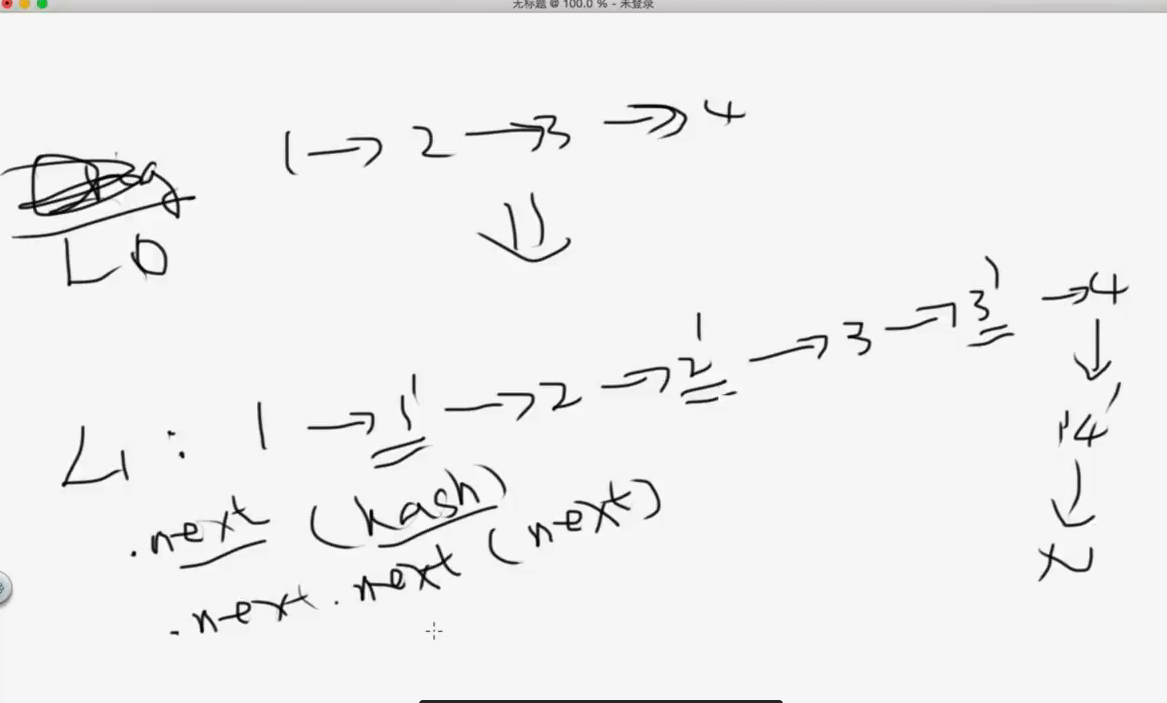 无标题 @ 100.0 % - 未登录
1 → 2 → 3 → 4
L0
L1 : 1 → 1' → 2 → 2' → 3 → 3' → 4
↓
4'
↓
N
.next (hash)
.next.next (next)